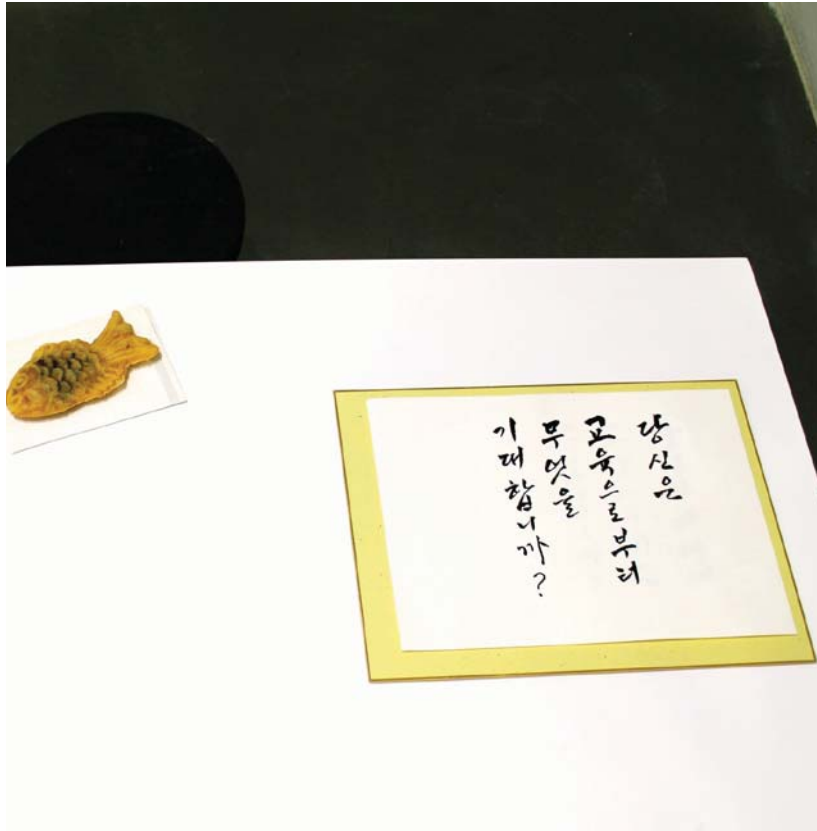 당신은
교육으로부터
무엇을
기대합니까?